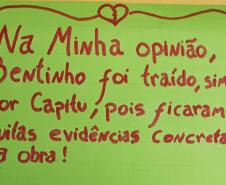 Na Minha opinião,
Bentinho foi traído, sim
por Capitu, pois ficaram
evidências concreta
a obra!